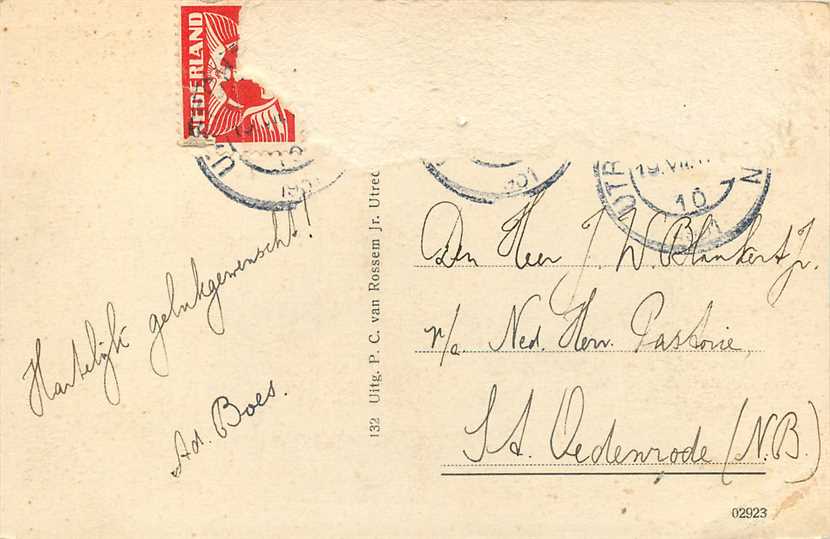 NEDERLAND
Hartelijk gelukgewenscht!
Ad. Boes.
132 Uitg. P. C. van Rossem Jr. Utrec
UTR
N
10
Den Heer J. W. Blankert Jr.
p/a. Ned. Herv. Pastorie,
St. Oedenrode (N.B.)
02923